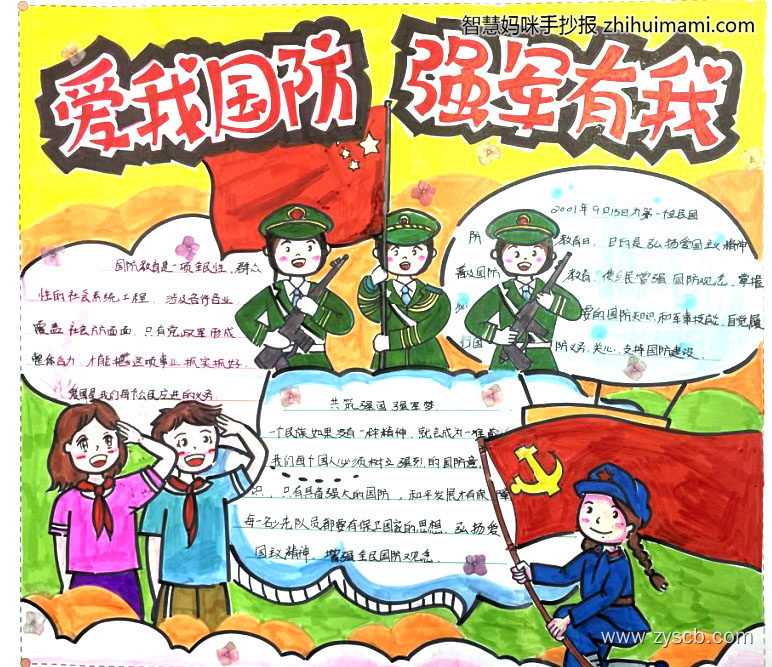 智慧妈咪手抄报 zhihuimami.com
爱我国防 强军有我
国防教育是一项全民性,群众
性的社会系统工程,涉及各行各业,
覆盖社会方方面面,只有党政军形成
整体合力,才能把这项事业抓实抓好
爱国是我们每个公民应进的义务
2001年9月15日为第一个全民国
防 教育日,目的是弘扬爱国主义精神
普及国防 教育,使全民增强国防观念,掌握
要的国防知识和军事技能,自觉履
行国 防义务,关心、支持国防建设.
共筑强国强军梦
一个民族如果没有一种精神,就会成为一
我们每个国人必须树立强烈的国防意
识,只有具备强大的国防,和平发展才有保障
每一名少先队员都要有保卫国家的思想,弘扬爱
国主义精神,增强全民国防观念.
www.zyscb.com